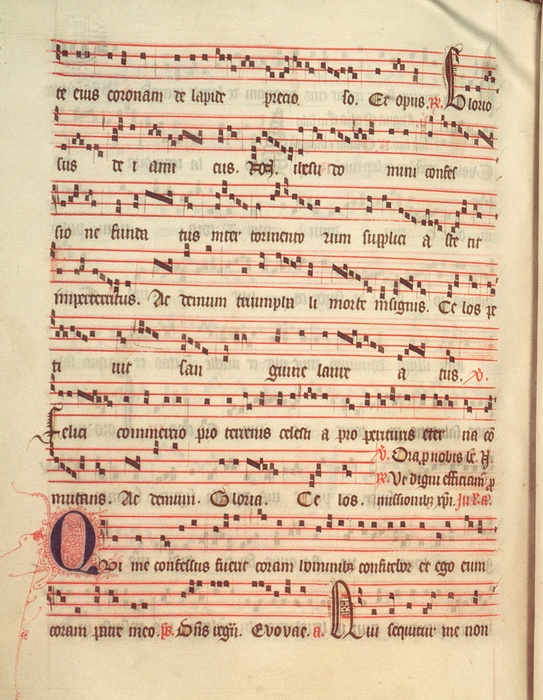 te eius coronam de lapide precio so. Et opus. R. Glorio
sus dei ami cus. ihesu do mini confes
sio ne funda tus inter tormento rum supplici a ste tit
imperterritus. Ac demum triumpha li morte insignis. Ce los pe
ti uit san guine laure a tus. V.
Felici commercio pro terrenis celesti a pro peritturis eter na co
V. Ora p nobis be.
mutans. Ac demum. Gloria. Ce los. R. Ut digni efficiam p
missionibus xpi.
Qui me confessus fuerit coram hominibus confitebor et ego eum
coram patre meo. ps. Dns regn. Evovae. a. Qui sequitur me non